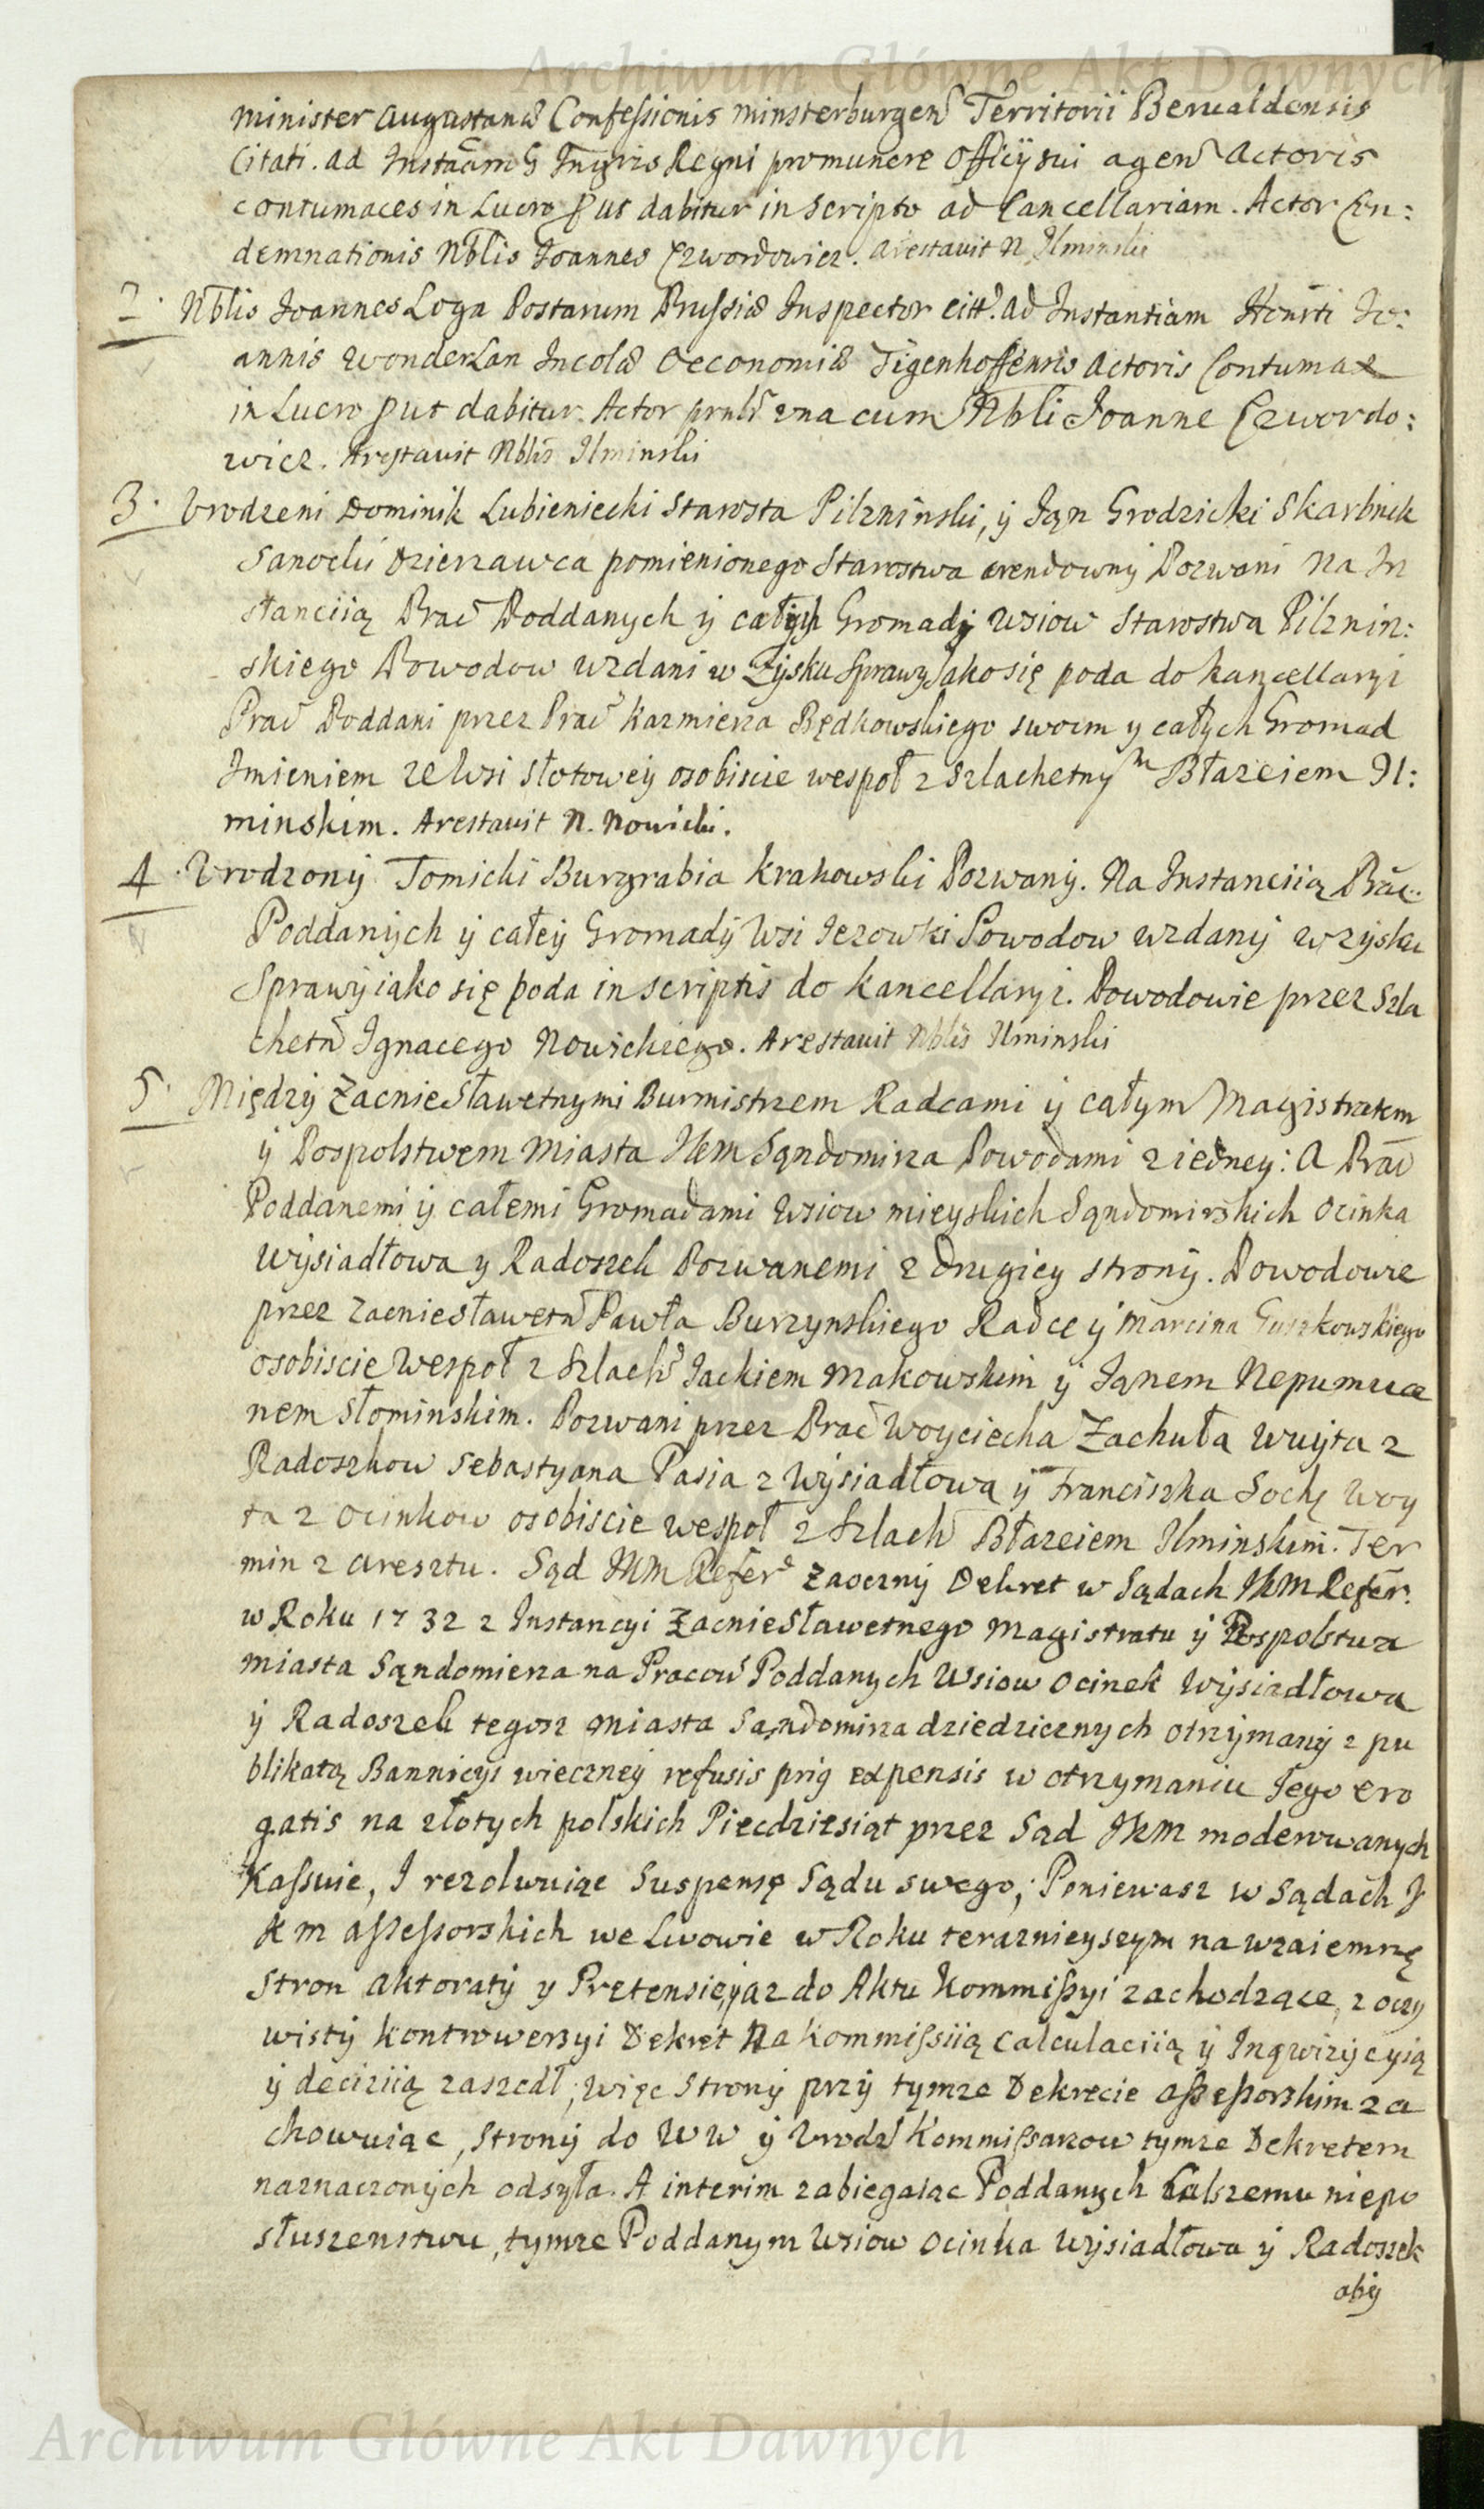 Archiwum Główne Akt Dawnych
minister Augustanæ Confessionis minsterburgen Territorii Berwaldensis
Citati. ad Instaām G Ingris Regni pro munere Officÿ sui agen Actoris
contumaces in Lucro put dabitur in scripto ad Cancellariam. Actor Con:
demnationis Nblis Joannes Czwordowicz. Arestavit N Ilminski
2. Nblis Joannes Loga Postarum Prussiæ Inspector citt. ad Instantiam Honrti Jo:
annis wonderLan Incolæ Oeconomiæ Tigenhoffensis Actoris Contumax
in Lucro put dabitur. Actor prnls vna cum Nbli Joanne Czwordo:
wicz. Arestavit Nblis Ilminski
3. Vrodzeni Dominik Lubieniecki Starosta Pilzninski, ÿ Jąn Grodzicki Skarbnik
Sanocki dzierzawca pomienionego Starostwa arendowny Pozwani Na In
stanciią Prac Poddanych ÿ całych Gromadÿ wsiow Starostwa Pilznin:
skiego Powodow wzdani w Zÿsku Sprawy Jako się poda do kancellaryi
Prac Poddani przez Prac Kazmierza Będkowskiego swoim y całych Gromad
Imieniem ze Wsi Słotoweÿ osobiscie wespoł z Szlachetnym Błazeiem Il:
minskim. Arestavit N. Nowicki.
4. Vrodzonÿ Tomicki Burgrabia Krakowski Pozwanÿ. Na Instanciią Prac
Poddanÿch ÿ całeÿ Gromadÿ Wsi Jezowki Powodow wzdanÿ w zÿsku
Sprawÿ iako się poda in scriptis do kancellaryi. Powodowie przez Szla
chetn Ignacego Nowickiego. Arestavit Nblis Ilminski
5. Międzÿ Zacnie Sławetnymi Burmistrzem Radcami ÿ całym Magistratem
ÿ Pospolstwem Miasta JKM Sąndomirza Powodami z iedney: A Prac
Poddanemi ÿ całemi Gromadami Wsiow mieyskich Sąndomirskich Ocinka
Wÿsiadłowa y Radoszek Pozwanemi z drugiey stronÿ. Powodowie
przez Zacniesławetn Pawła Burzynskiego Radce ÿ Marcina Guszkowskiego
osobiscie Wespoł z Szlach Jackiem Makowskim ÿ Jąnem Nepumuce
nem Słominskim. Pozwani przez Prac Woyciecha Zachuła Wuÿta z
Radoszkow Sebastyana Pasia z Wÿsiadłowa ÿ Franciszka Sochę Woy
ta z Ocinkow osobiscie wespoł z Szlach Błazeiem Ilminskim. Ter
min z Aresztu. Sąd JKM Refer Zaocznÿ Dekret w Sądach JKM Refer.
w Roku 1732 z Instancyi Zacnie Sławetnego Magistratu ÿ Pospolstwa
miasta Sąndomierza na Pracow Poddanych Wsiow Ocinek Wÿsiadłowa
ÿ Radoszek tegosz miasta Sąndomirza dziedzicznych otrzÿmanÿ z pu
blikatą Bannicyi wieczneÿ refusis prig expensis w otrzymaniu Jego ero
gatis na złotych polskich Piecdziesiąt przez Sąd JKM moderowanych
Kassuie, I rezolwuiąc Suspensę Sądu swego; Poniewasz w Sądach J
K M Assessorskich we Lwowie w Roku terazniejszym na wzaiemnę
Stron Aktoratÿ y Pretensieÿ az do Aktu Kommissyi zachodzące, z oczy
wistÿ kontrowersyi Dekret Na Kommissiią Calculaciią ÿ Inqwizycyią
ÿ deciziią zaszedł; więc Stronÿ przÿ tymze Dekrecie Assessorskim za
chowuiąc, Stronÿ do WW ÿ Vrodz Kommissarzow tymze Dekretem
naznaczonÿch odsyła. A interim zabiegaiąc Poddanych dalszemu niepo
słuszenstwu, tymze Poddanym Wsiow Ocinka Wÿsiadłowa ÿ Radoszek
abÿ
Archiwum Główne Akt Dawnych